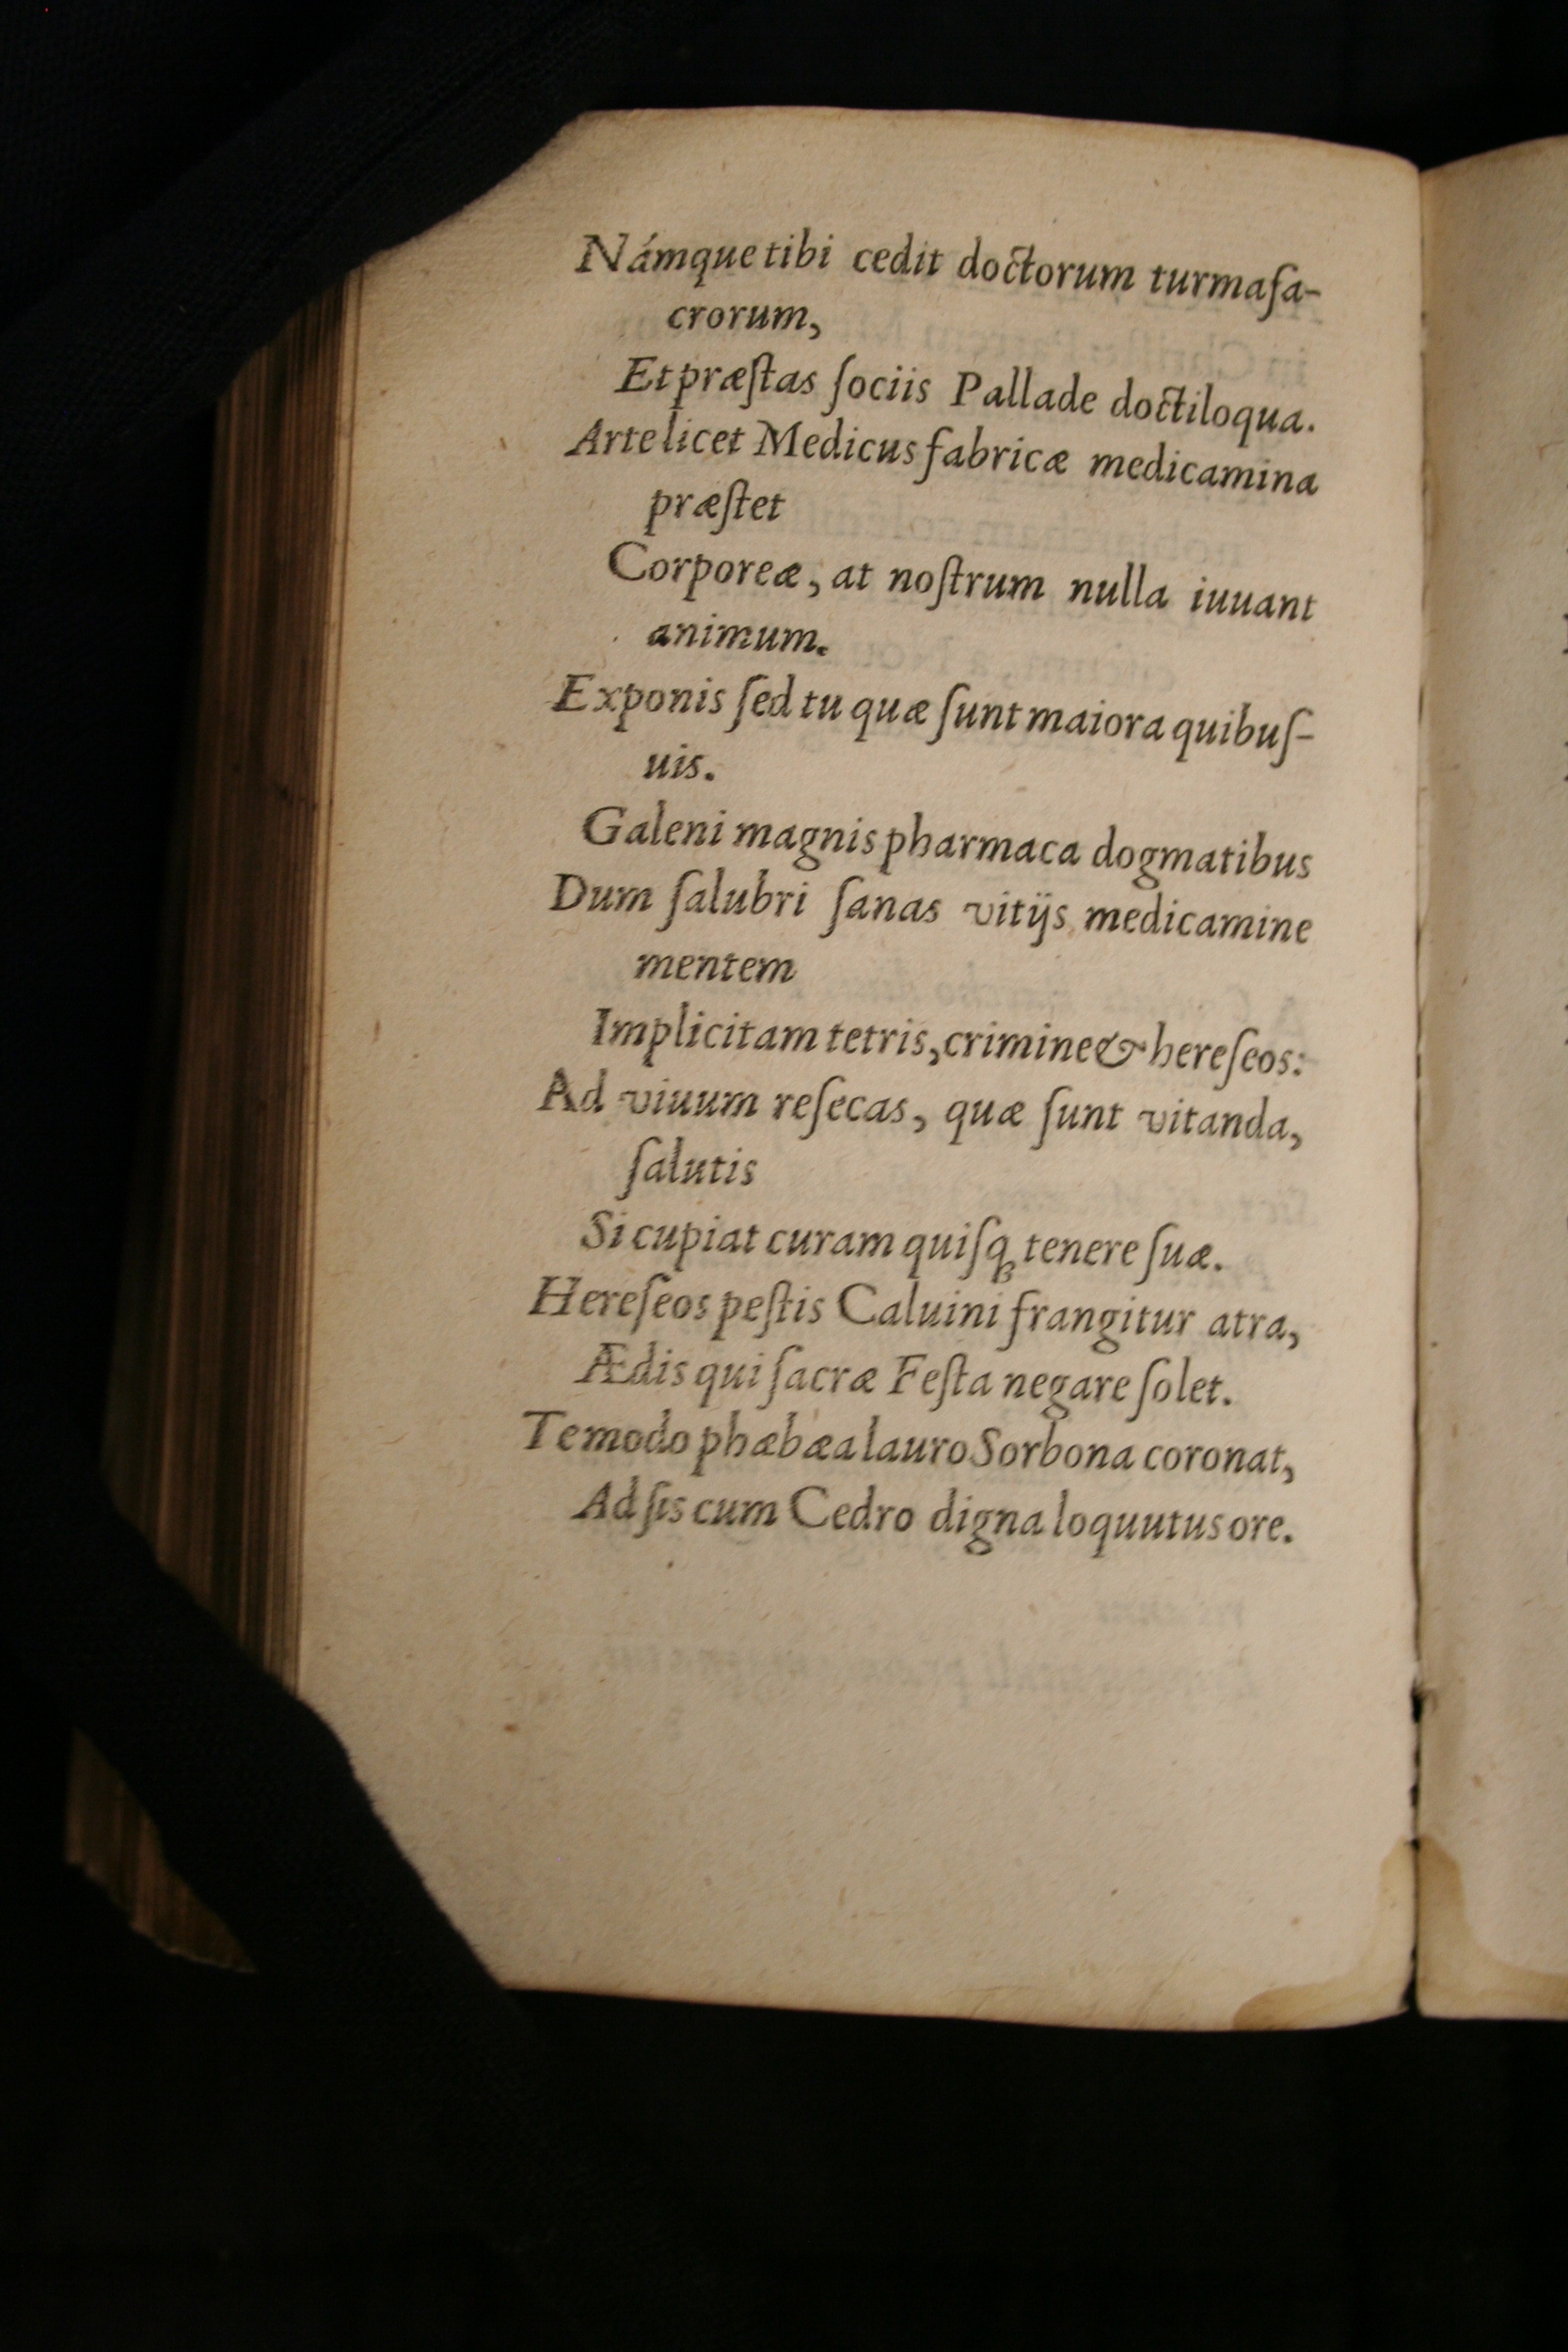 Námque tibi cedit doctorum turma ſa-
crorum,
Et præſtas ſociis Pallade doctiloqua.
Arte licet Medicus fabricæ medicamina
præſtet
Corporeæ, at noſtrum nulla iuuant
animum.
Exponis ſed tu quæ ſunt maiora quibuſ-
uis.
Galeni magnis pharmaca dogmatibus
Dum ſalubri ſanas vitijs medicamine
mentem
Implicitam tetris, crimine & hereſeos:
Ad viuum reſecas, quæ ſunt vitanda,
ſalutis
Si cupiat curam quiſqꝫ tenere ſuæ.
Hereſeos peſtis Caluini frangitur atra,
Ædis qui ſacræ Feſta negare ſolet.
Te modo phæbæa lauro Sorbona coronat,
Ad ſis cum Cedro digna loquutus ore.